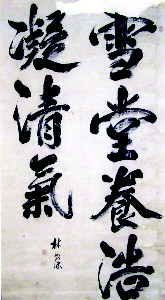 雪堂養浩
凝清氣